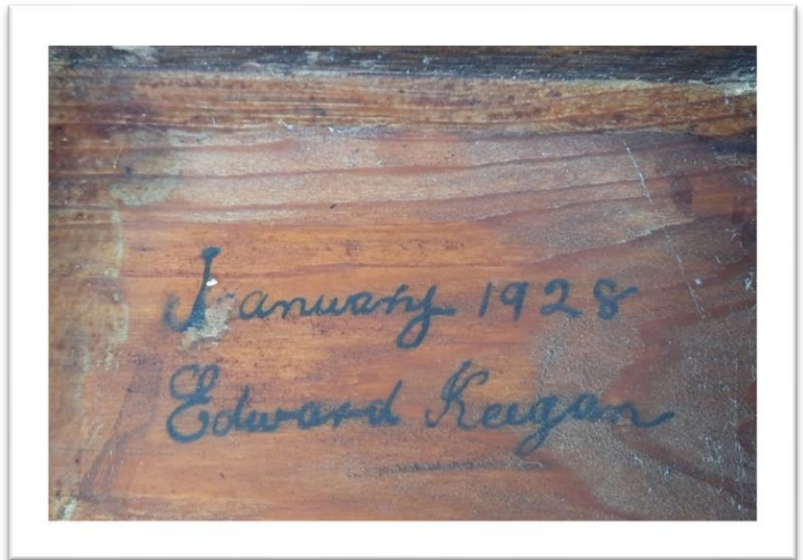 January 1928
Edward Keegan